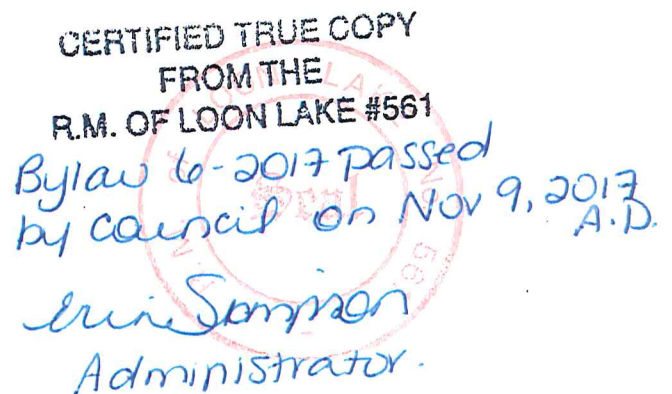 CERTIFIED TRUE COPY
FROM THE
R.M. OF LOON LAKE #561
Bylaw 6-2017 passed
by council on Nov 9, 2017
A.D.
Erin Simpson
Administrator.
Seal